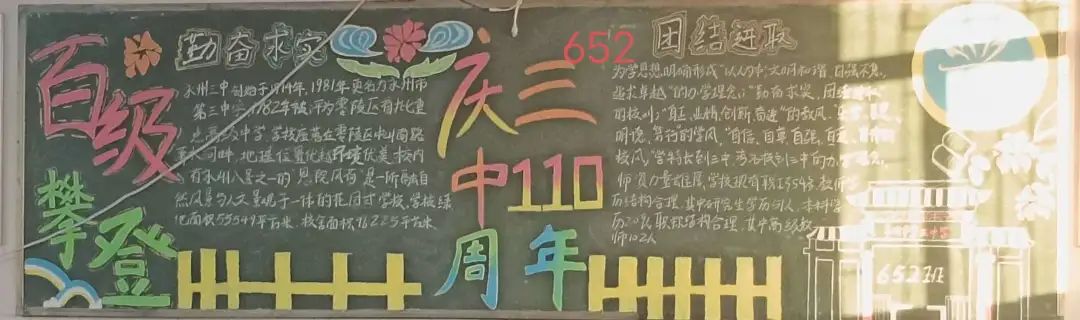 百级
攀登
勤奋求实
永州三中创始于1914年,1981年更名为永州市
第三中学,1982年被评为零陵区首批重
点高级中学,学校座落在零陵区
河畔,地理位置优越环境优美,校内
有永州八景之一的恩院风荷,是一所融自
然风景与人文景观于一体的花园式学校,学校绿
化面积55549平方米,校舍面积76225平方米
庆三
中110
周年
652
团结进取
办学思想明确形成“以人为本,文明和谐,自强不息,
追求卓越”的办学理念,“勤奋求实,团结进取”
的校训,“真正,业精,创新,奋进”的教风,
明德,笃行的学风,“自信,自尊,自强,
校风,“学校
师资力量雄厚,学校现有职工354名,教师学
历结构合理,其中研究生学历
历,职称结构合理,其中高级教
师102人
652班